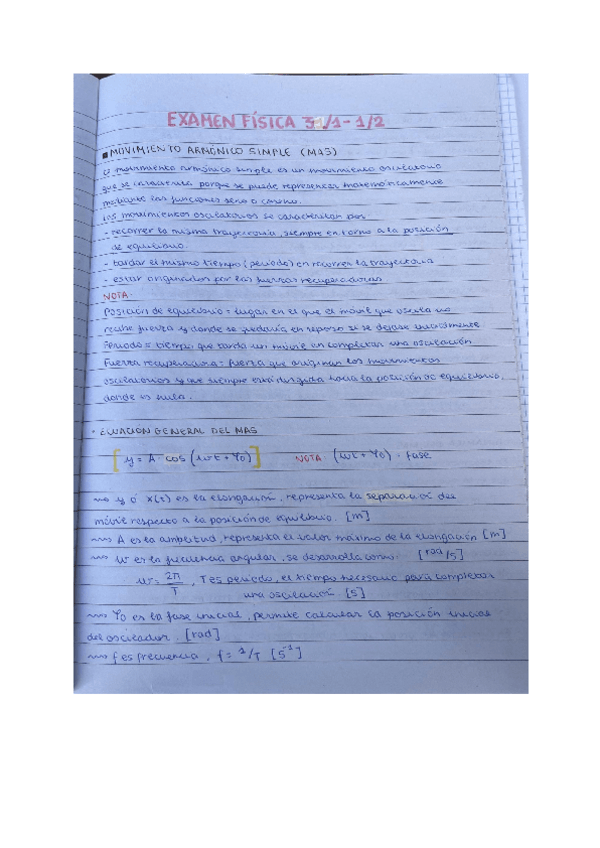 EXAMEN FÍSICA 31/1-1/2
MOVIMIENTO ARMÓNICO SIMPLE (MAS)
El movimiento armónico simple es un movimiento oscilatorio
que se caracteriza porque se puede representar matemáticamente
mediante las funciones seno o coseno.
Los movimientos oscilatorios se caracterizan por:
- recorrer la misma trayectoria, siempre en torno a la posición
de equilibrio.
- tardar el mismo tiempo (período) en recorrer la trayectoria
- estar originados por las fuerzas recuperadoras
NOTA:
Posición de equilibrio = lugar en el que el móvil que oscila no
recibe fuerza y donde se quedaría en reposo si se dejase inicialmente
Período = tiempo que tarda un móvil en completar una oscilación
Fuerza recuperadora = fuerza que originan los movimientos
oscilatorios y que siempre está dirigida hacia la posición de equilibrio,
donde es nula.
· ECUACIÓN GENERAL DEL MAS
[y = A · cos (wt + φ0)] NOTA: (wt + φ0) = fase
y ó x(t) es la elongación, representa la separación del
móvil respecto a la posición de equilibrio. [m]
A es la amplitud, representa el valor máximo de la elongación [m]
w es la frecuencia angular, se desarrolla como: [rad/s]
w = 2π/T, T es período, el tiempo necesario para completar
una oscilación. [s]
φ0 es la fase inicial, permite calcular la posición inicial
del oscilador. [rad]
f es frecuencia, f = 1/T [s⁻¹]